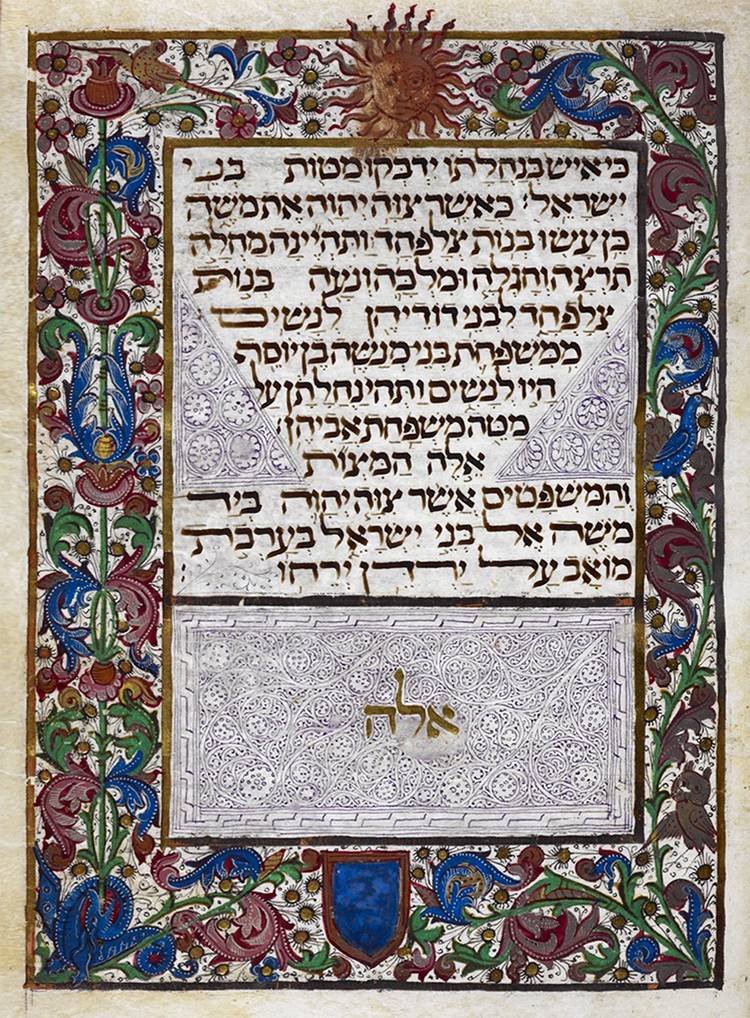 כי איש בנחלתו ידבקו מטות בני
ישראל: כאשר צוה יהוה את משה
כן עשו בנות צלפחד: ותהיינה מחלה
תרצה וחגלה ומלכה ונעה בנות
צלפחד לבני דדיהן לנשים:
ממשפחת בני מנשה בן יוסף
היו לנשים ותהי נחלתן על
מטה משפחת אביהן:
אלה המצות
והמשפטים אשר צוה יהוה ביד
משה אל בני ישראל בערבת
מואב על ירדן ירחו:
אלה